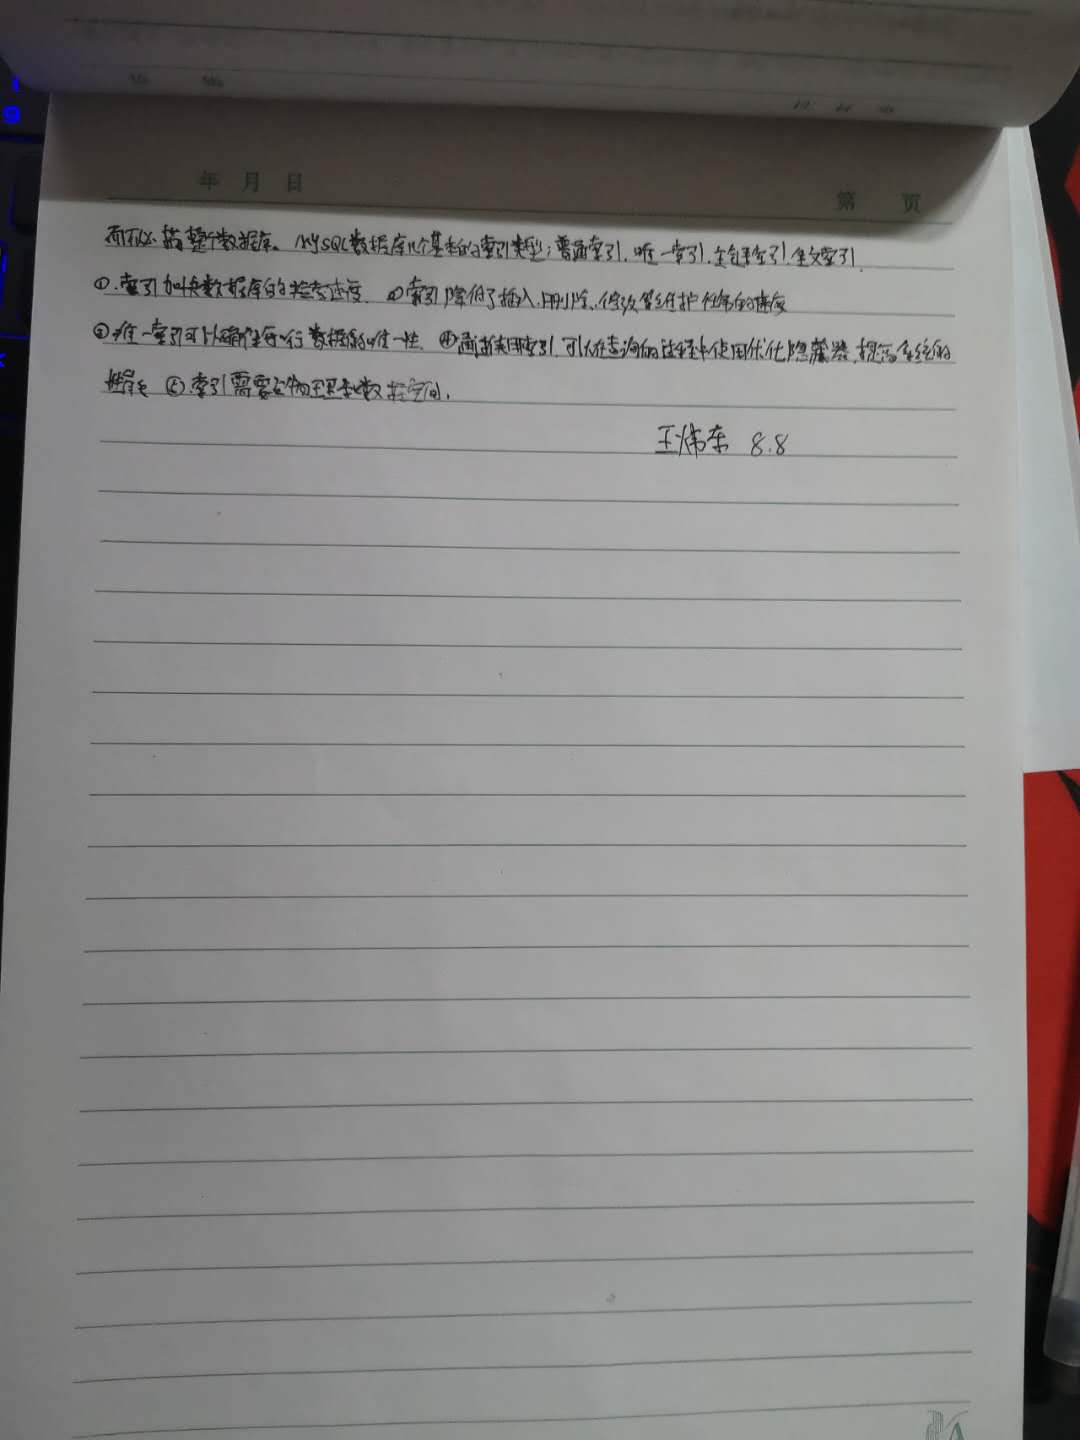 年 月 日
第 页
而不必扫描整个数据库。MySQL数据库几个基本的索引类型：普通索引、唯一索引、主键索引、全文索引
①.索引加快数据库的检索速度 ②索引降低了插入、删除、修改等维护任务的速度
③唯一索引可以确保每一行数据的唯一性 ④通过使用索引，可以在查询的过程中使用优化隐藏器，提高系统的
性能 ⑤.索引需要占物理和数据空间.
王炜东 8.8